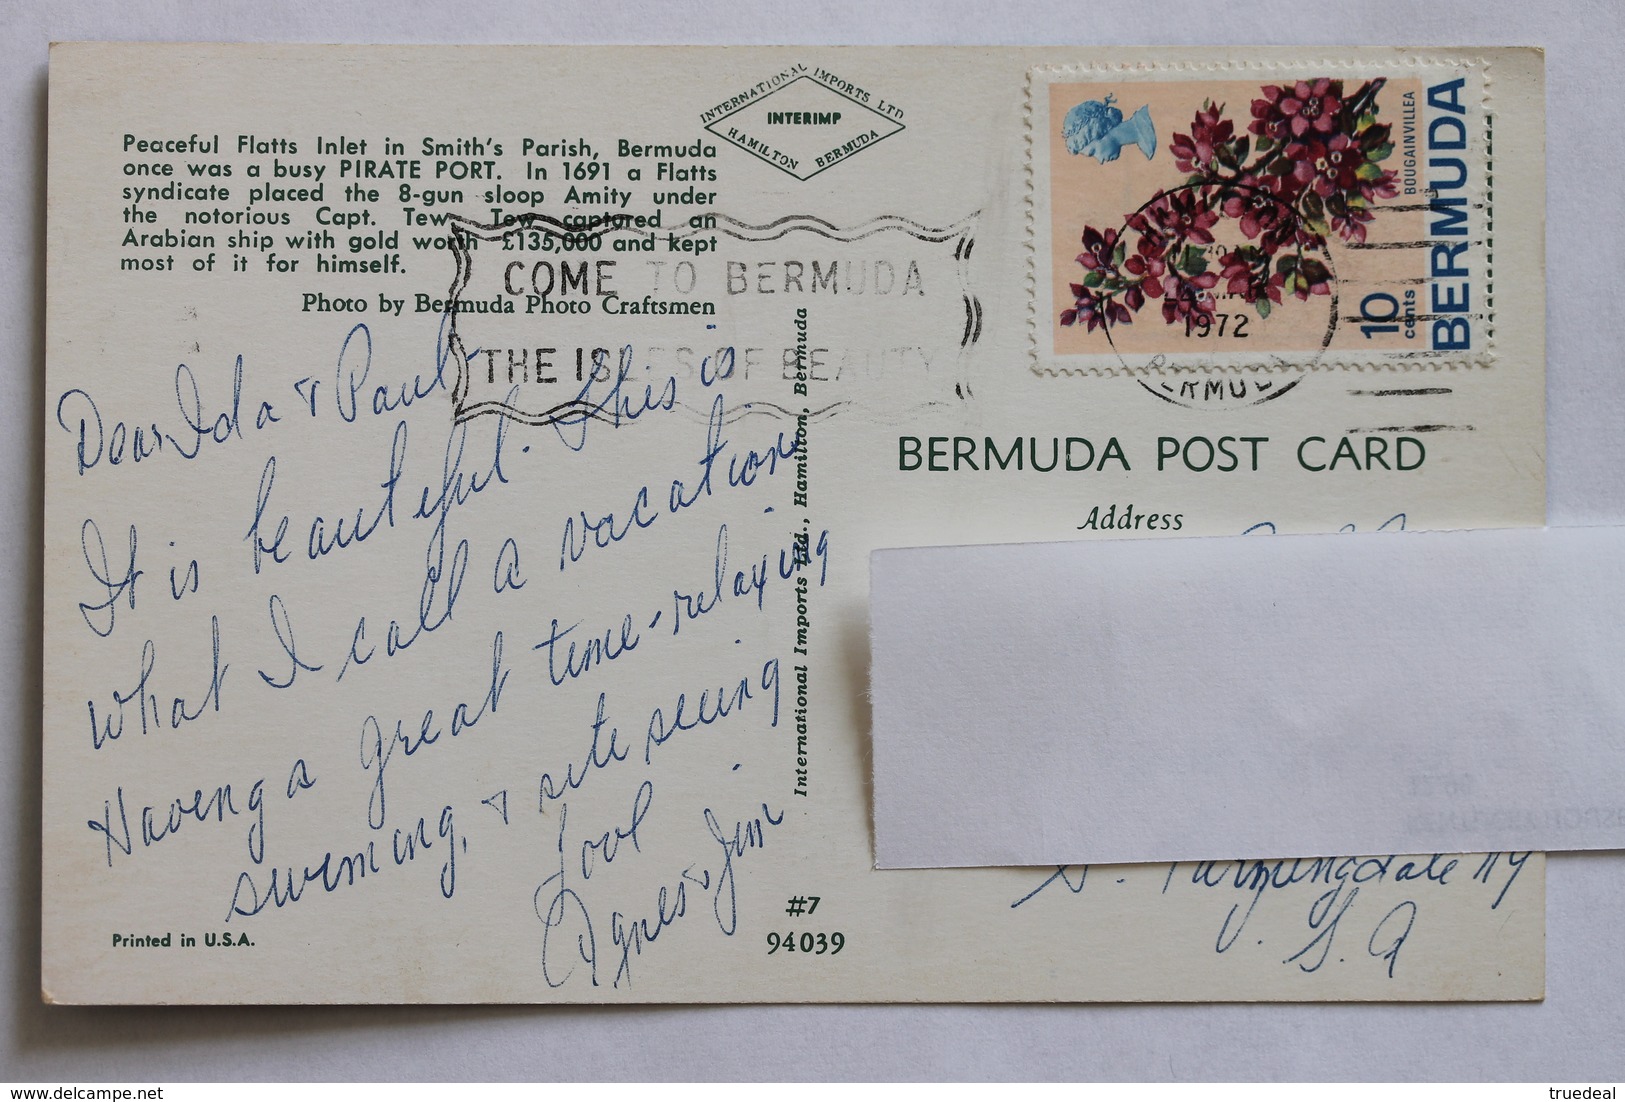 INTERNATIONAL IMPORTS LTD
INTERIMP
HAMILTON BERMUDA
Peaceful Flatts Inlet in Smith's Parish, Bermuda
once was a busy PIRATE PORT. In 1691 a Flatts
syndicate placed the 8-gun sloop Amity under
the notorious Capt. Tew. Tew captured an
Arabian ship with gold worth £135,000 and kept
most of it for himself.
Photo by Bermuda Photo Craftsmen
COME TO BERMUDA
THE ISLES OF BEAUTY
BOUGAINVILLEA
10 cents
BERMUDA
HAMILTON
1972
BERMUDA
Dear Ida & Paul
It is beautiful. This is
what I call a vacation
Having a great time - relaxing
swimming, & site seeing
Agnes & Jim
International Imports Ltd., Hamilton, Bermuda
BERMUDA POST CARD
Address
Farmingdale NY
U. S. A
#7
94039
Printed in U.S.A.
delcampe.net
truedeal